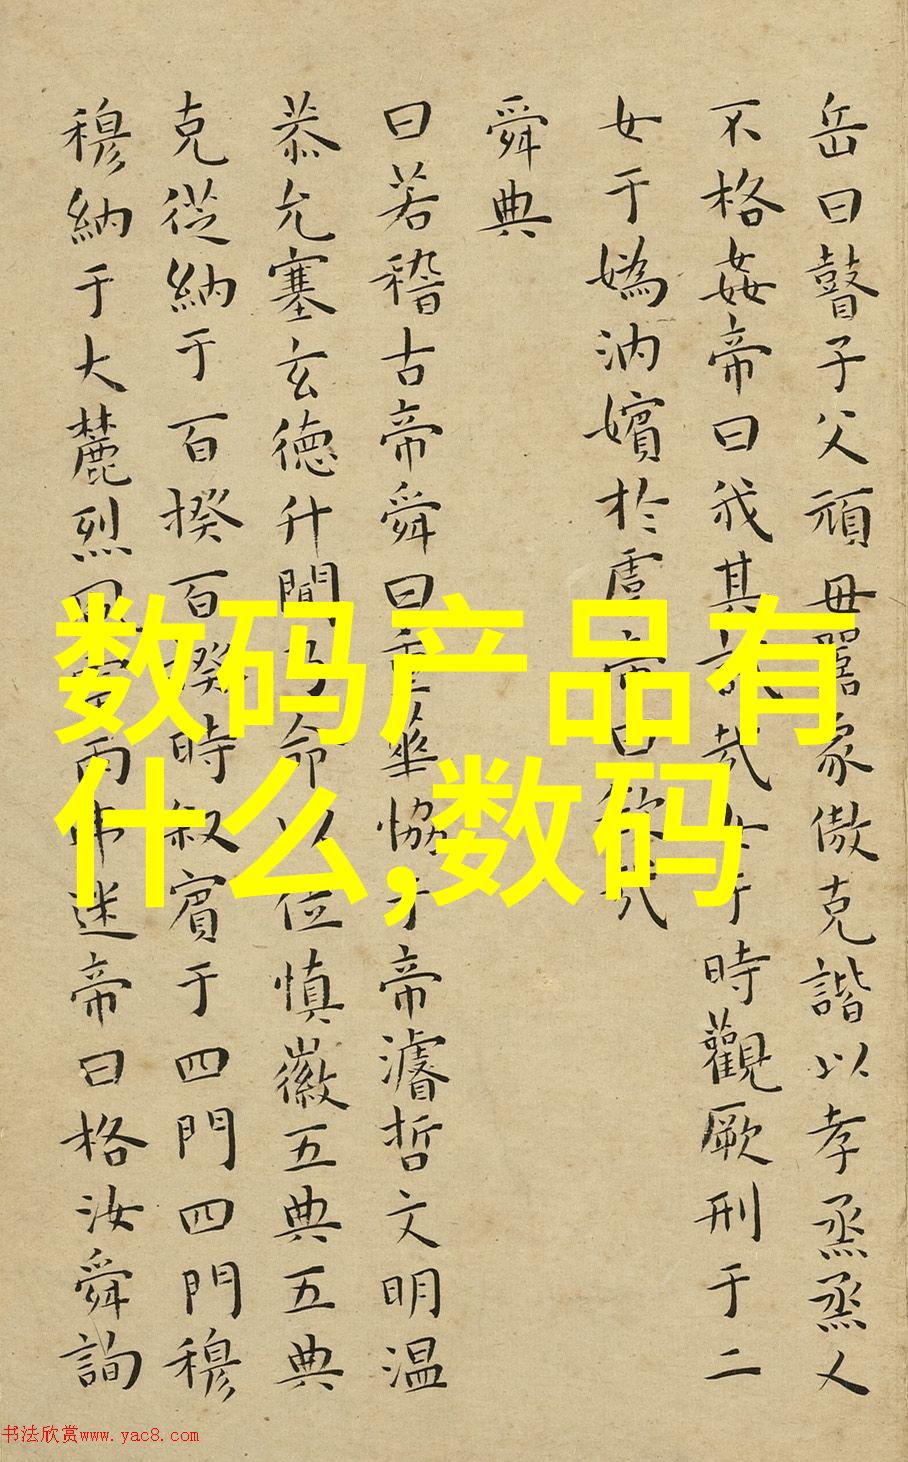 岳曰瞽子父頑毋嚚象傲克諧以孝烝烝乂
不格姦帝曰我其試哉女于時觀厥刑于二
女于媯汭嬪於虞帝曰欽哉
舜典
曰若稽古帝舜曰重華協于帝濬哲文明温
恭允塞玄德升聞乃命以位慎徽五典五典
克從納于百揆百揆時叙賓于四門四門穆
穆納于大麓烈風雷雨弗迷帝曰格汝舜詢
数码产品有
什么,数码
书法欣赏www.yac8.com